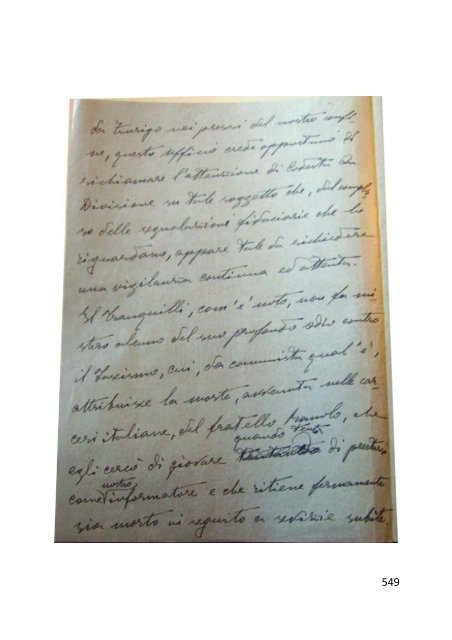 da Zurigo nei pressi del nostro confi-
ne, questo ufficio crede opportuno di
richiamare l'attenzione di Codesta On.
Divisione su tale soggetto che, dal comples-
so delle segnalazioni fiduciarie che lo
riguardano, appare tale da richiedere
una vigilanza continua ed attenta.
Il Tranquilli, com'è noto, non fa mi
stero alcuno del suo profondo odio contro
il fascismo, cui, da comunista qual'è,
attribuisce la morte, avvenuta nelle car-
ceri italiane, del fratello Romolo, che
quando tentò
egli cercò di giovare di prestarsi
nostro
come informatore e che ritiene fermamente
sia morto in seguito a sevizie subite
549